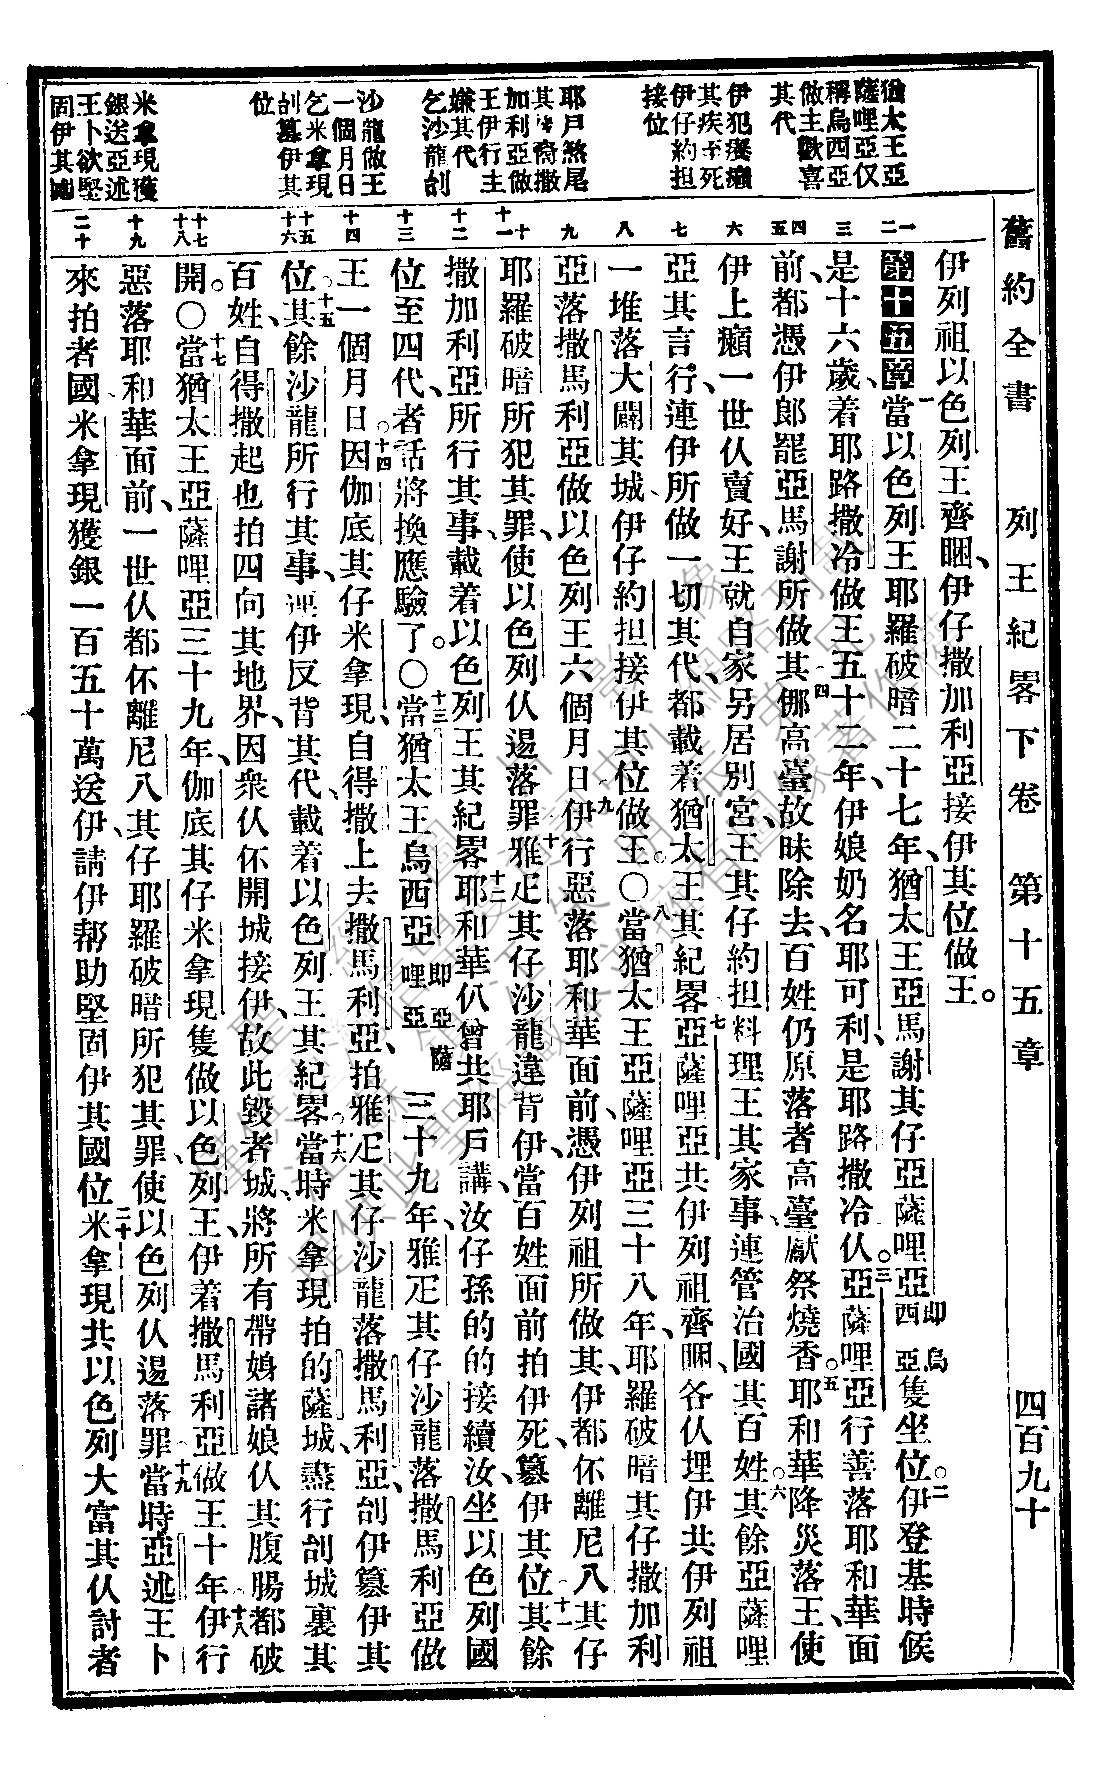 舊約全書　列王紀畧下卷　第十五章　四百九十
猶太王亞
薩哩亞仅
稱烏西亞
做主歡喜
其代
伊犯癩
其疾至死
伊仔約担
接位
耶戶煞尾
其裔撒
加利亞做
王伊行主
嫌其代
乞沙龍刣
沙龍做王
一個月日
乞米拿現
刣篡伊其
位
米拿現獲
銀送亞述
王卜欲堅
固伊其國
一 二 三 四 五 六 七 八 九 十 十一 十二 十三 十四 十五 十六 十七 十八 十九 二十
伊列祖以色列王齊睏、伊仔撒加利亞接伊其位做王。
第十五章 一當以色列王耶羅破暗二十七年、猶太王亞馬謝其仔亞薩哩亞即烏西亞隻坐位。二伊登基時候
是十六歲、着耶路撒冷做王五十二年、伊娘奶名耶可利、是耶路撒冷仈。三亞薩哩亞行善落耶和華面
前、都憑伊郎罷亞馬謝所做其。四哪高臺故昧除去、百姓仍原落者高臺獻祭燒香。五耶和華降災落王使
伊上癩一世仈賣好、王就自家另居別宮、王其仔約担料理王其家事、連管治國其百姓。六其餘亞薩哩
亞其言行、連伊所做一切其代、都載着猶太王其紀畧。七亞薩哩亞共伊列祖齊睏、各仈埋伊共伊列祖
一堆落大闢其城、伊仔約担接伊其位做王。○八當猶太王亞薩哩亞三十八年、耶羅破暗其仔撒加利
亞落撒馬利亞做以色列王六個月日。九伊行惡落耶和華面前、憑伊列祖所做其、伊都伓離尼八其仔
耶羅破暗所犯其罪、使以色列仈逿落罪。十雅疋其仔沙龍違背伊、當百姓面前拍伊死、篡伊其位。十一其餘
撒加利亞所行其事、載着以色列王其紀畧。十二耶和華仈曾共耶戶講、汝仔孫的的接續汝、坐以色列國
位至四代、者話將換應驗了。○十三當猶太王烏西亞即亞薩哩亞三十九年、雅疋其仔沙龍落撒馬利亞做
王一個月日。十四因伽底其仔米拿現、自得撒上去撒馬利亞、拍雅疋其仔沙龍落撒馬利亞、刣伊篡伊其
位。十五其餘沙龍所行其事、連伊反背其代、載着以色列王其紀畧。十六當時米拿現拍的薩城、盡行刣城裏其
百姓、自得撒起也拍四向其地界、因衆仈伓開城接伊、故此毀者城、將所有帶娠諸娘仈其腹腸都破
開。○十七當猶太王亞薩哩亞三十九年、伽底其仔米拿現隻做以色列王、伊着撒馬利亞做王十年。十八伊行
惡落耶和華面前、一世仈都伓離尼八其仔耶羅破暗所犯其罪、使以色列仈逿落罪。十九當時亞述王卜
來拍者國、米拿現獲銀一百五十萬送伊、請伊帮助堅固伊其國位。二十米拿現共以色列大富其仈討者